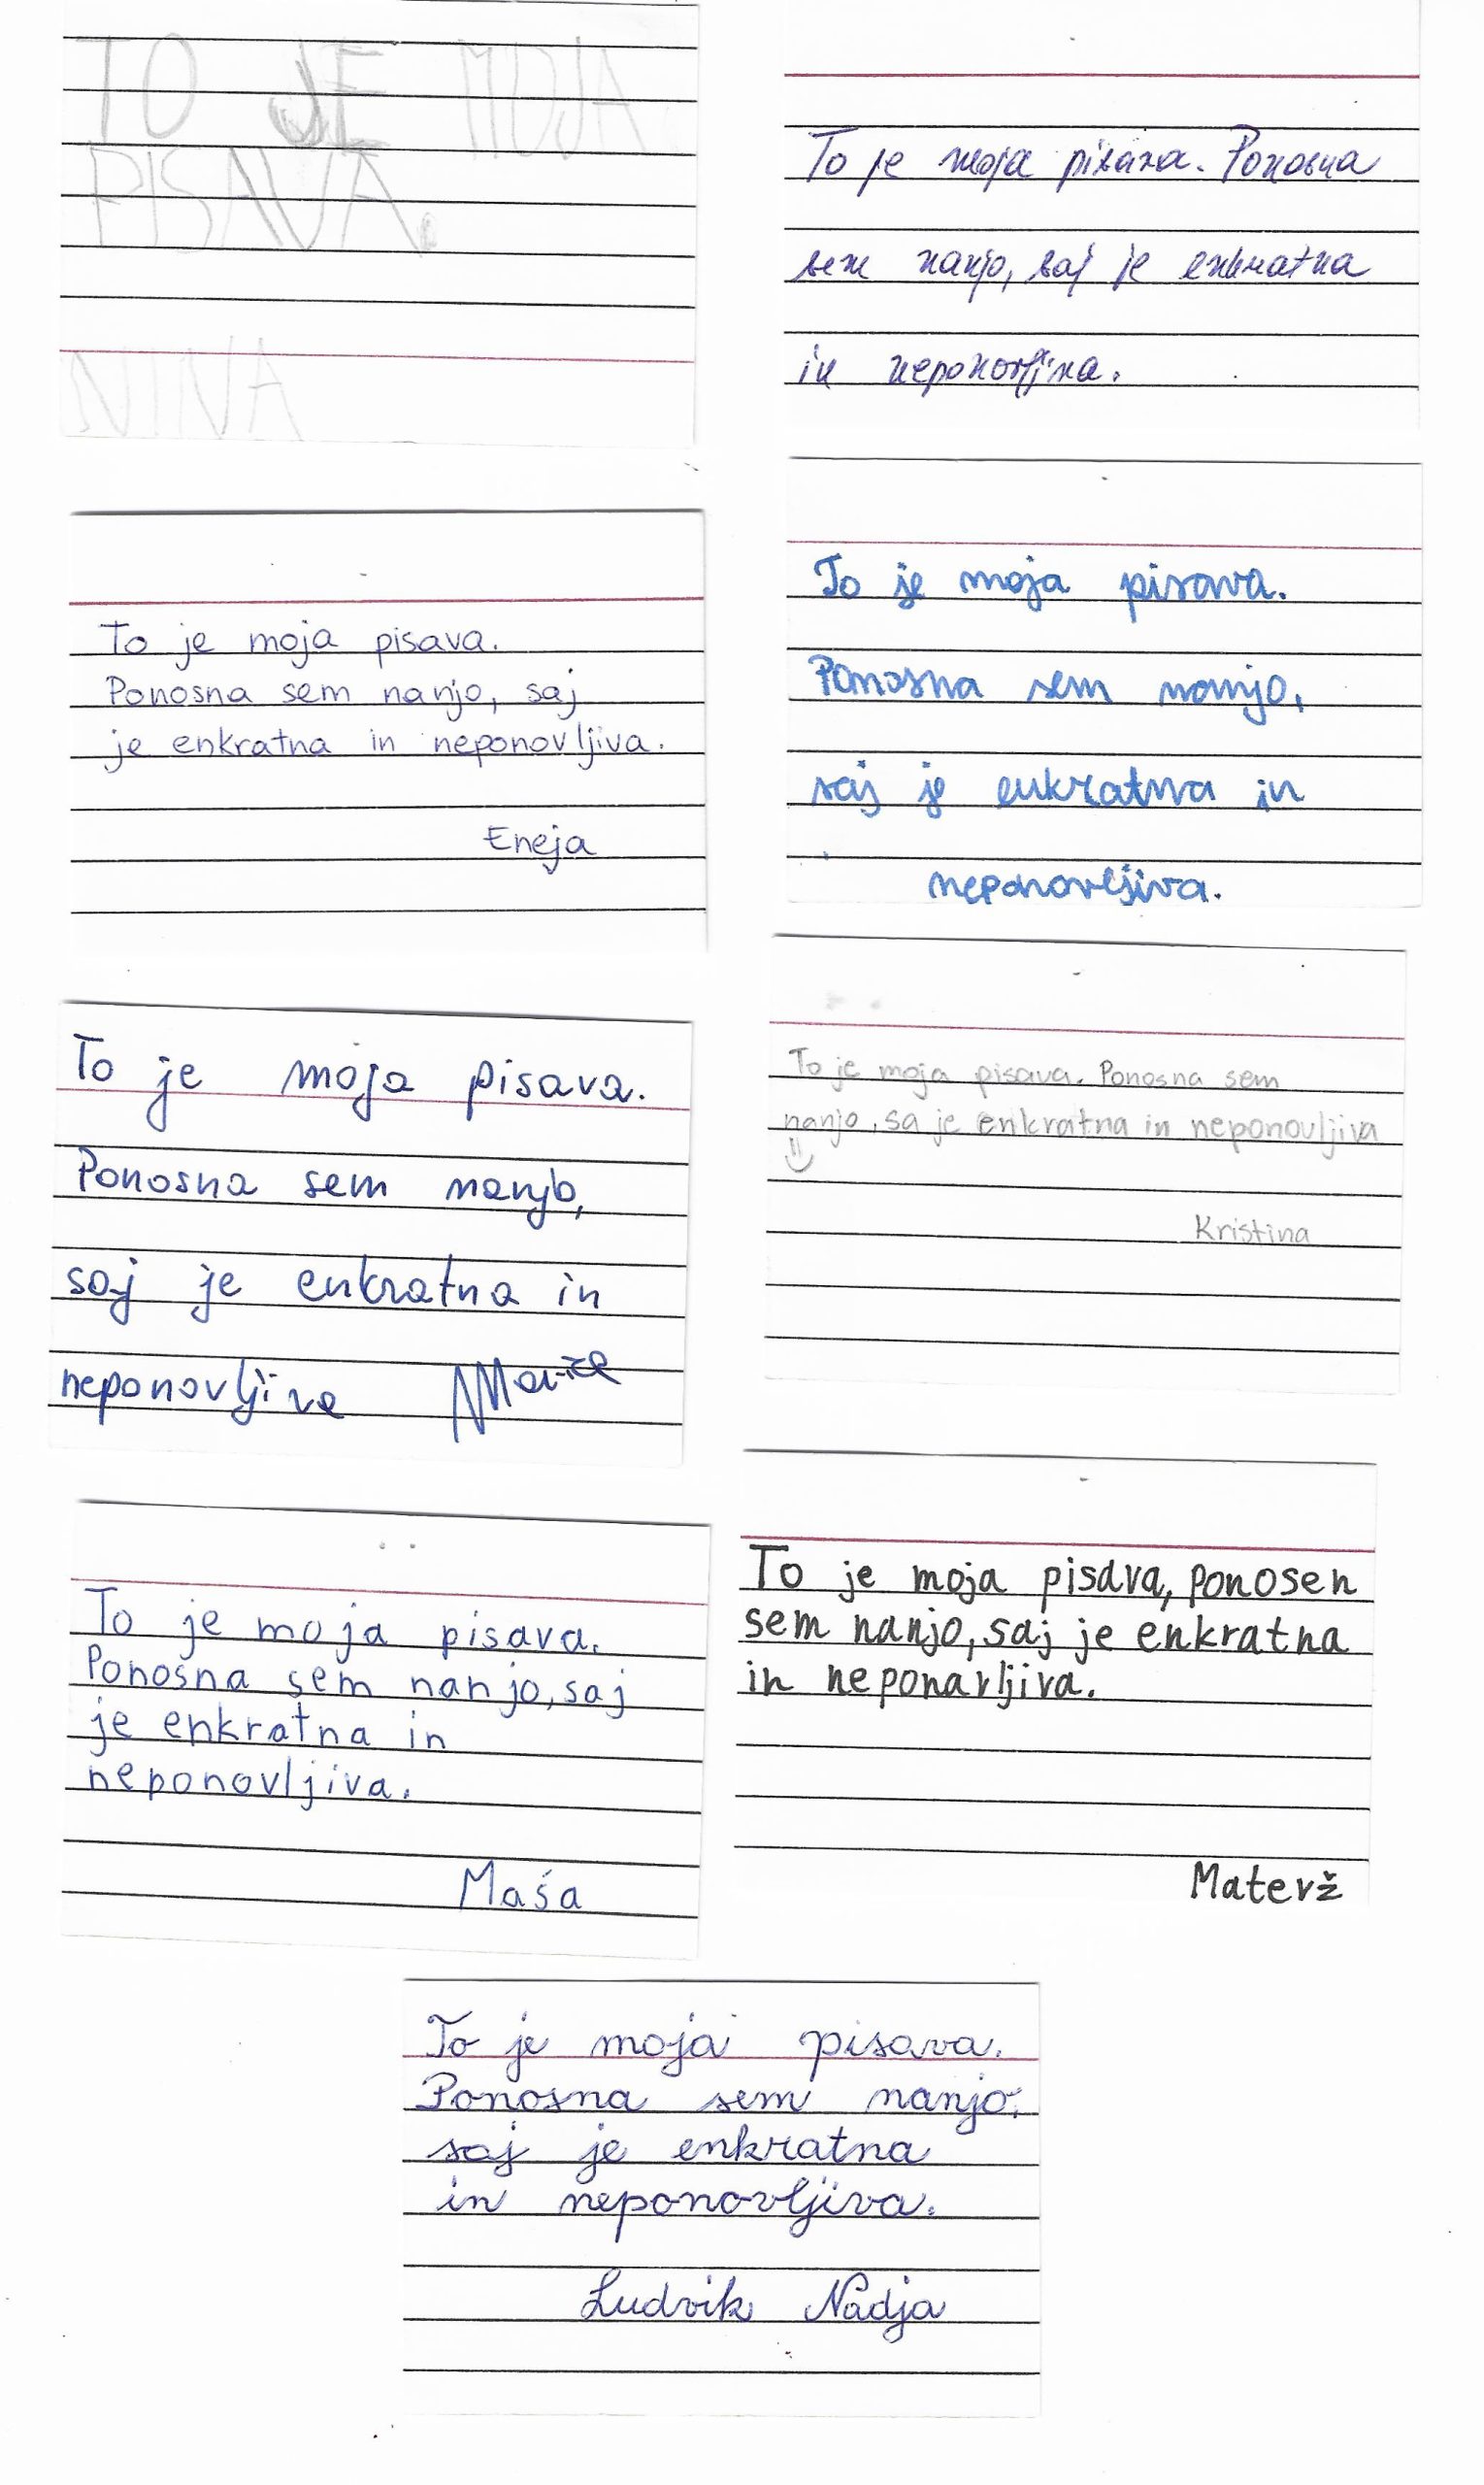 TO JE MOJA
PISAVA.
NINA
To je moja pisava. Ponosna
sem nanjo, saj je enkratna
in neponovljiva.
To je moja pisava.
Ponosna sem nanjo, saj
je enkratna in neponovljiva.
Eneja
To je moja pisava.
Ponosna sem nanjo,
saj je enkratna in
neponovljiva.
To je moja pisava.
Ponosna sem nanjo,
saj je enkratna in
neponovljiva
To je moja pisava. Ponosna sem
nanjo, sa je enkratna in neponovljiva
Kristina
To je moja pisava.
Ponosna sem nanjo, saj
je enkratna in
neponovljiva.
Maša
To je moja pisava, ponosen
sem nanjo, saj je enkratna
in neponavljiva.
Matevž
To je moja pisava.
Ponosna sem nanjo,
saj je enkratna
in neponovljiva.
Ludvik Nadja